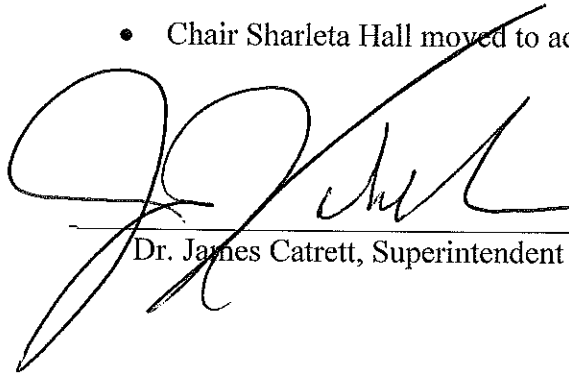 • Chair Sharleta Hall moved to ad
Dr. James Catrett, Superintendent